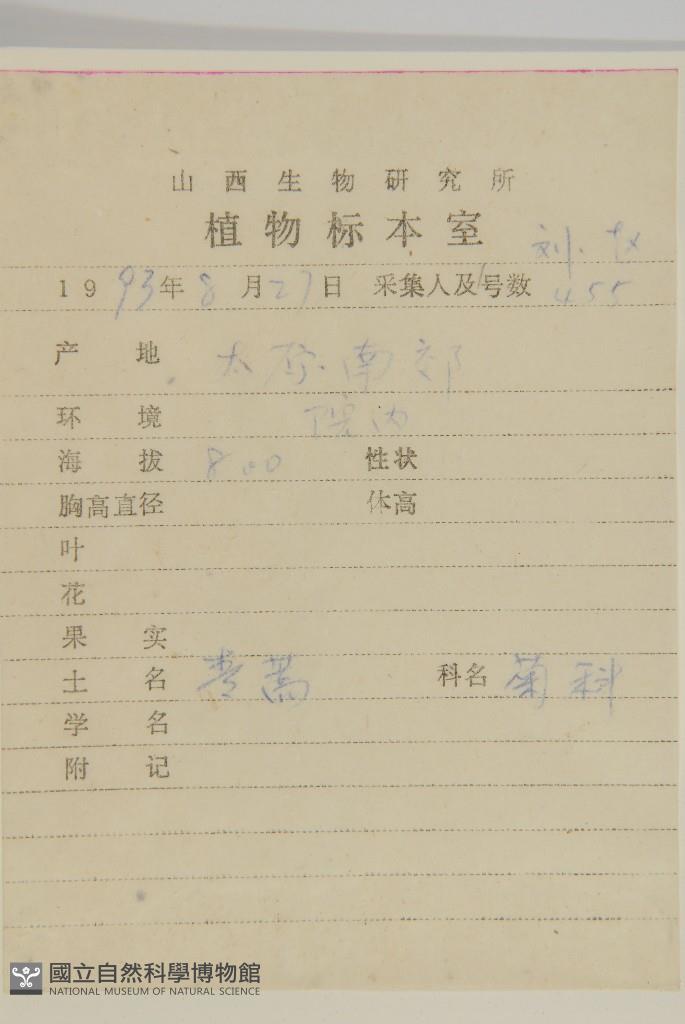 山西生物研究所
植物标本室
刘.
1993年8月27日 采集人及号数 455
产地 太原南郊
环境 院内
海拔 800 性状
胸高直径 体高
叶
花
果实
土名 青蒿 科名 菊科
学名
附记
國立自然科學博物館
NATIONAL MUSEUM OF NATURAL SCIENCE